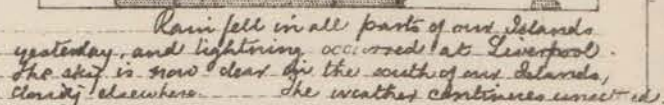 Rain fell in all parts of our Islands
yesterday, and lightning occurred at Liverpool.
The sky is now clear in the south of our Islands,
cloudy elsewhere. The weather continues unsettled